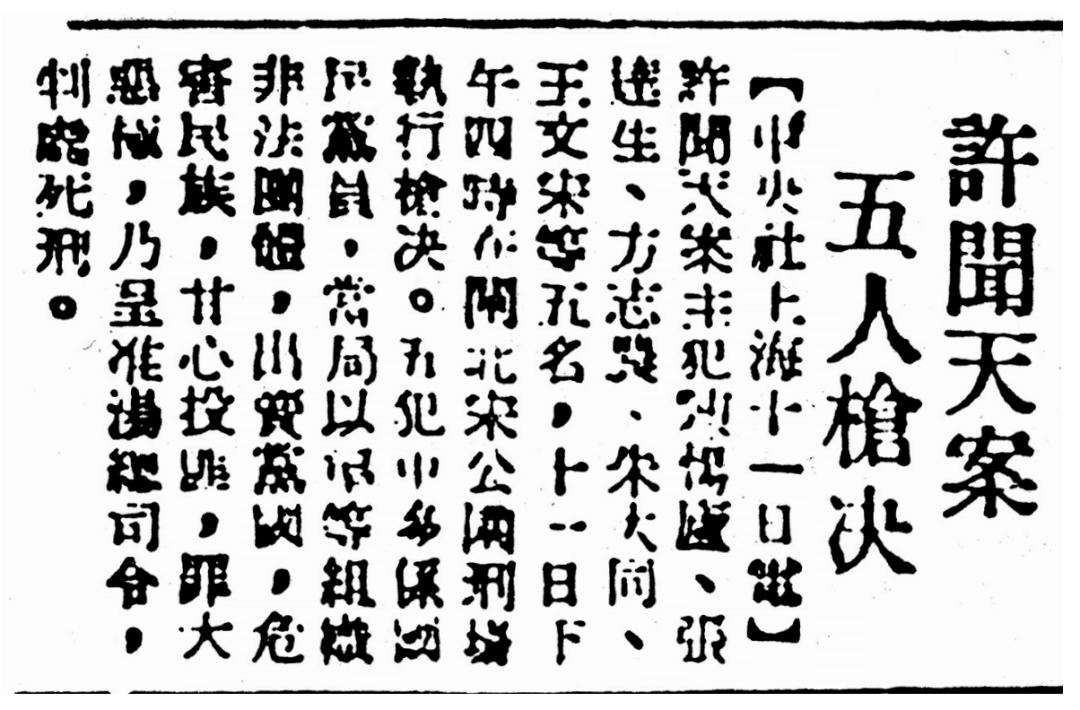 許聞天案
五人槍决
【中央社上海十一日電】
許聞天案主犯廬、張
達生、方志、朱大同、
王文宋等五名,十一日下
午四時在閘北宋公園刑場
執行槍决。五犯中多係國
民黨員,當局以渠等組織
非法團體,出賣黨國,危
害民族,甘心投匪,罪大
惡極,乃呈准湯總司令,
判處死刑。